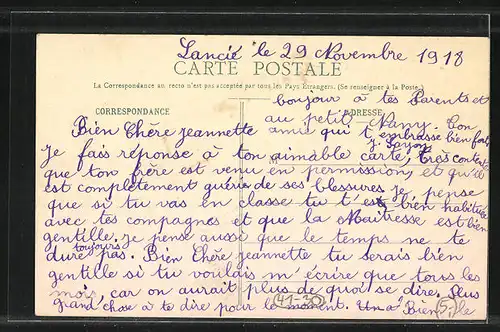 Lancié le 29 Novembre 1918
CARTE POSTALE
La Correspondance au recto n'est pas acceptée par tous les Pays Étrangers. (Se renseigner à la Poste.)
bonjour à tes Parents et
CORRESPONDANCE
ADRESSE
au petit Nany. Ton
Bien Chère jeannette
amie qui t'embrasse bien fort
je fais réponse à ton aimable carte, très contente
que ton frère est venu en permission, et qu'il
est complètement guérie de ses blessures je pense
que si tu vas en classe tu t'es bien habituée
avec tes compagnes et que la Maîtresse est bien
gentille. je pense aussi que le temps ne te
toujours
dure pas. Bien Chère jeannette tu serais bien
gentille si tu voulais m'écrire que tous les
mois, car on aurait plus de quoi se dire. Plus
grand chose à te dire pour le moment. Un Bien le
(41-30)
(5,-)